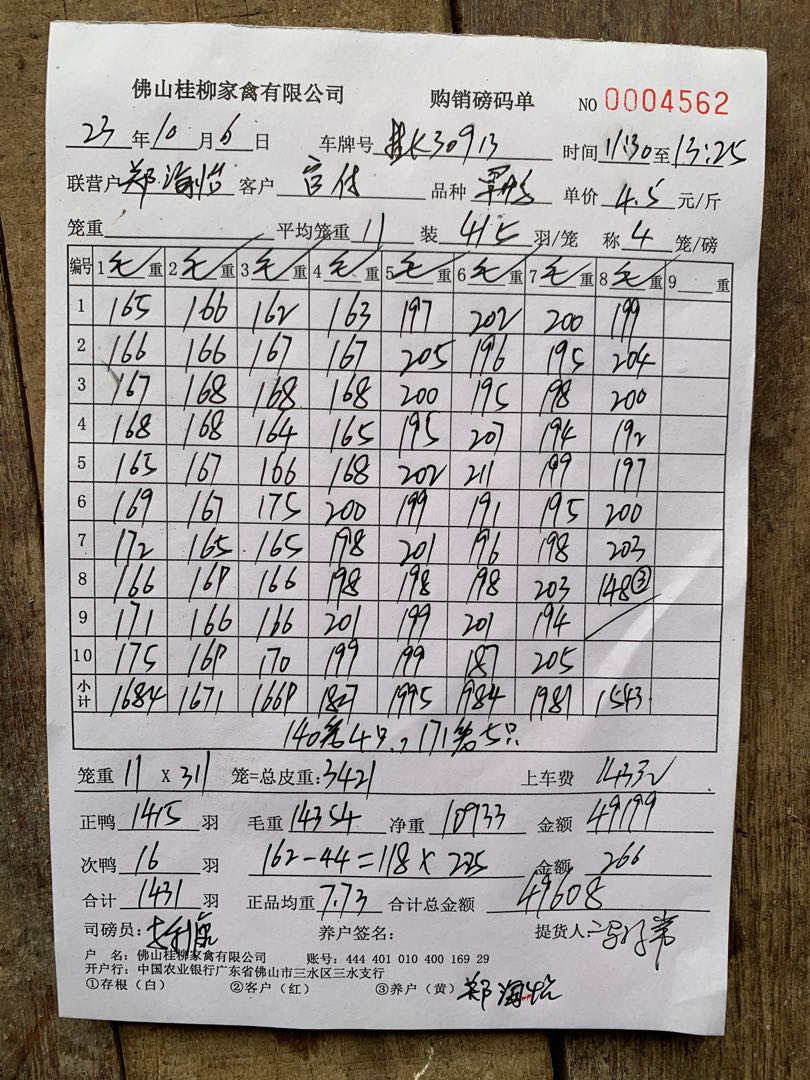 佛山桂柳家禽有限公司 购销磅码单 NO 0004562
23年10月6日 车牌号 桂K30913 时间 11:30至13:25
联营户 郑海怡 客户 官付 品种 单价 4.5 元/斤
笼重 平均笼重 11 装 4/5 羽/笼 称 4 笼/磅
编号 1毛重 2毛重 3毛重 4毛重 5毛重 6毛重 7毛重 8毛重 9 重
1 165 166 162 163 197 202 200 199
2 166 166 167 167 205 196 195 204
3 167 168 168 168 200 195 198 200
4 168 168 164 165 195 207 194 192
5 165 167 166 168 202 211 199 197
6 169 167 175 200 199 191 195 200
7 172 165 165 198 201 196 198 203
8 166 169 166 198 198 198 203 148③
9 171 166 166 201 199 201 194
10 175 169 170 199 199 187 205
小计 1684 1671 1669 1827 1995 1984 1981 1543
140笼4只,171笼5只
笼重 11 X 311 笼=总皮重:3421 上车费 14332
正鸭 1415 羽 毛重 14354 净重 10933 金额 49199
次鸭 16 羽 162-44=118×225 金额 266
合计 1431 羽 正品均重 7.73 合计总金额 49608
司磅员: 养户签名: 提货人:
户 名:佛山桂柳家禽有限公司 账号:444 401 010 400 169 29
开户行:中国农业银行广东省佛山市三水区三水支行
①存根(白) ②客户(红) ③养户(黄) 郑海怡